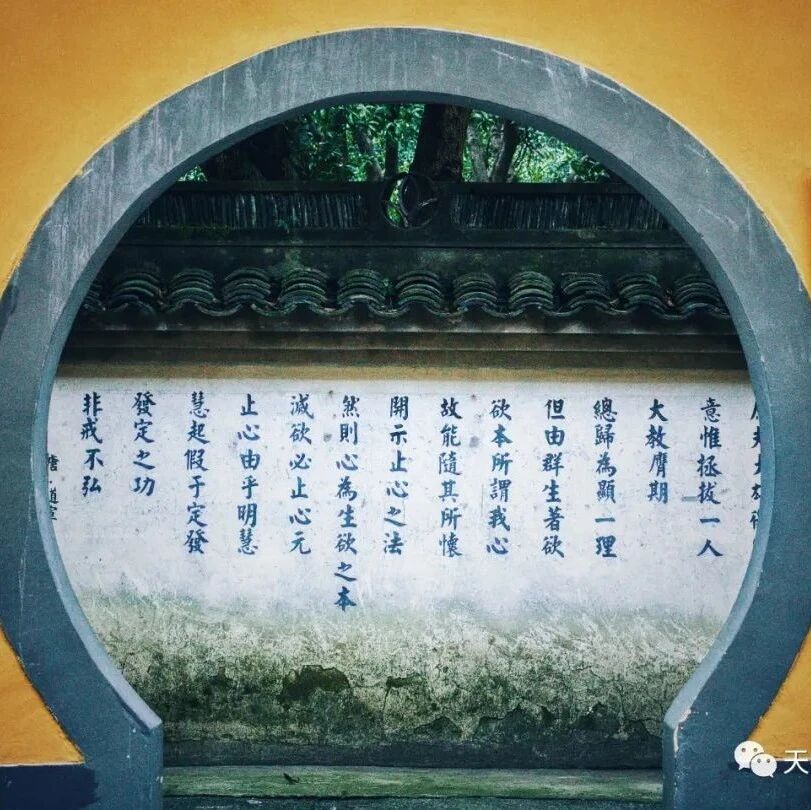 意惟拯拔一人
大教膺期
總歸為顯一理
但由群生著欲
欲本所謂我心
故能隨其所懷
開示止心之法
然則心為生欲之本
滅欲必止心元
止心由乎明慧
慧起假于定發
發定之功
非戒不弘
唐·道宣
天